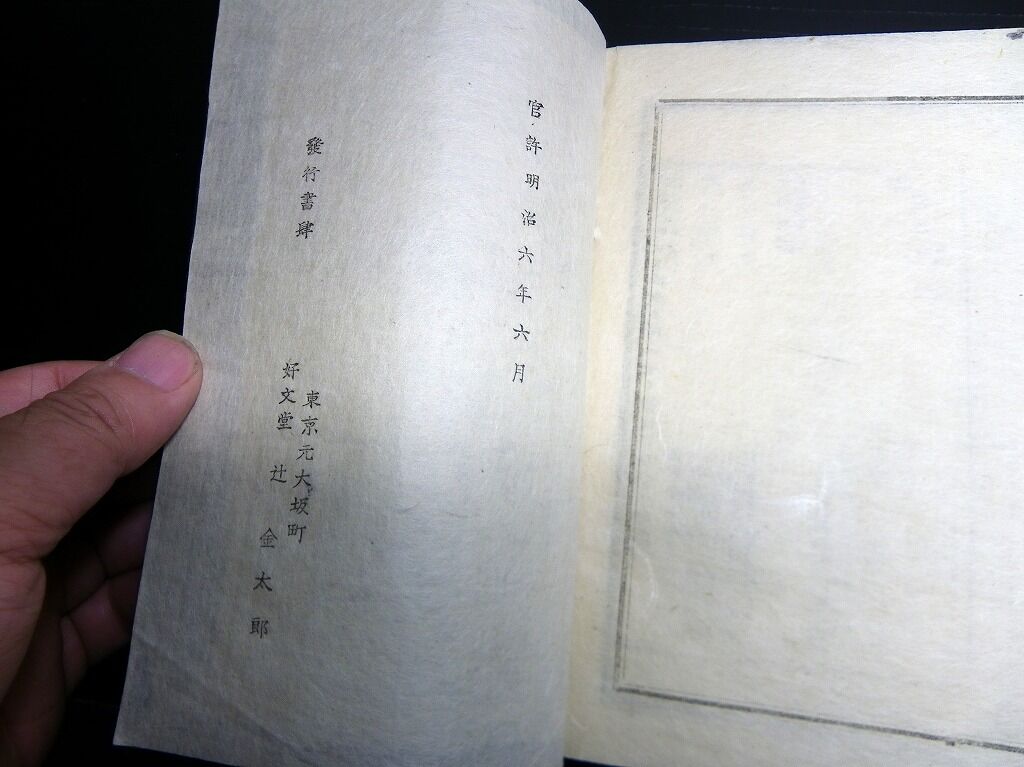 官許明治六年六月
發行書肆
東京元大坂町
好文堂 辻 金太郎